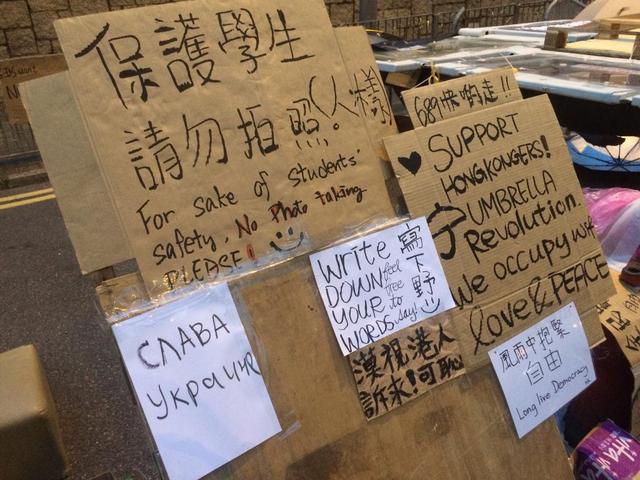 保護學生
請勿拍照。(人樣
For sake of students'
safety, No Photo taking
PLEASE!
689快啲走!!
SUPPORT
HONGKONGERS!
UMBRELLA
Revolution.
We occupy with
love & PEACE
Write
DOWN feel
YOUR free
WORDS to say!
寫下野
漠視港人
訴求!可恥
СЛАВА
УКРАИНЕ
"風雨中抱緊
自由"
Long live Democracy
vita